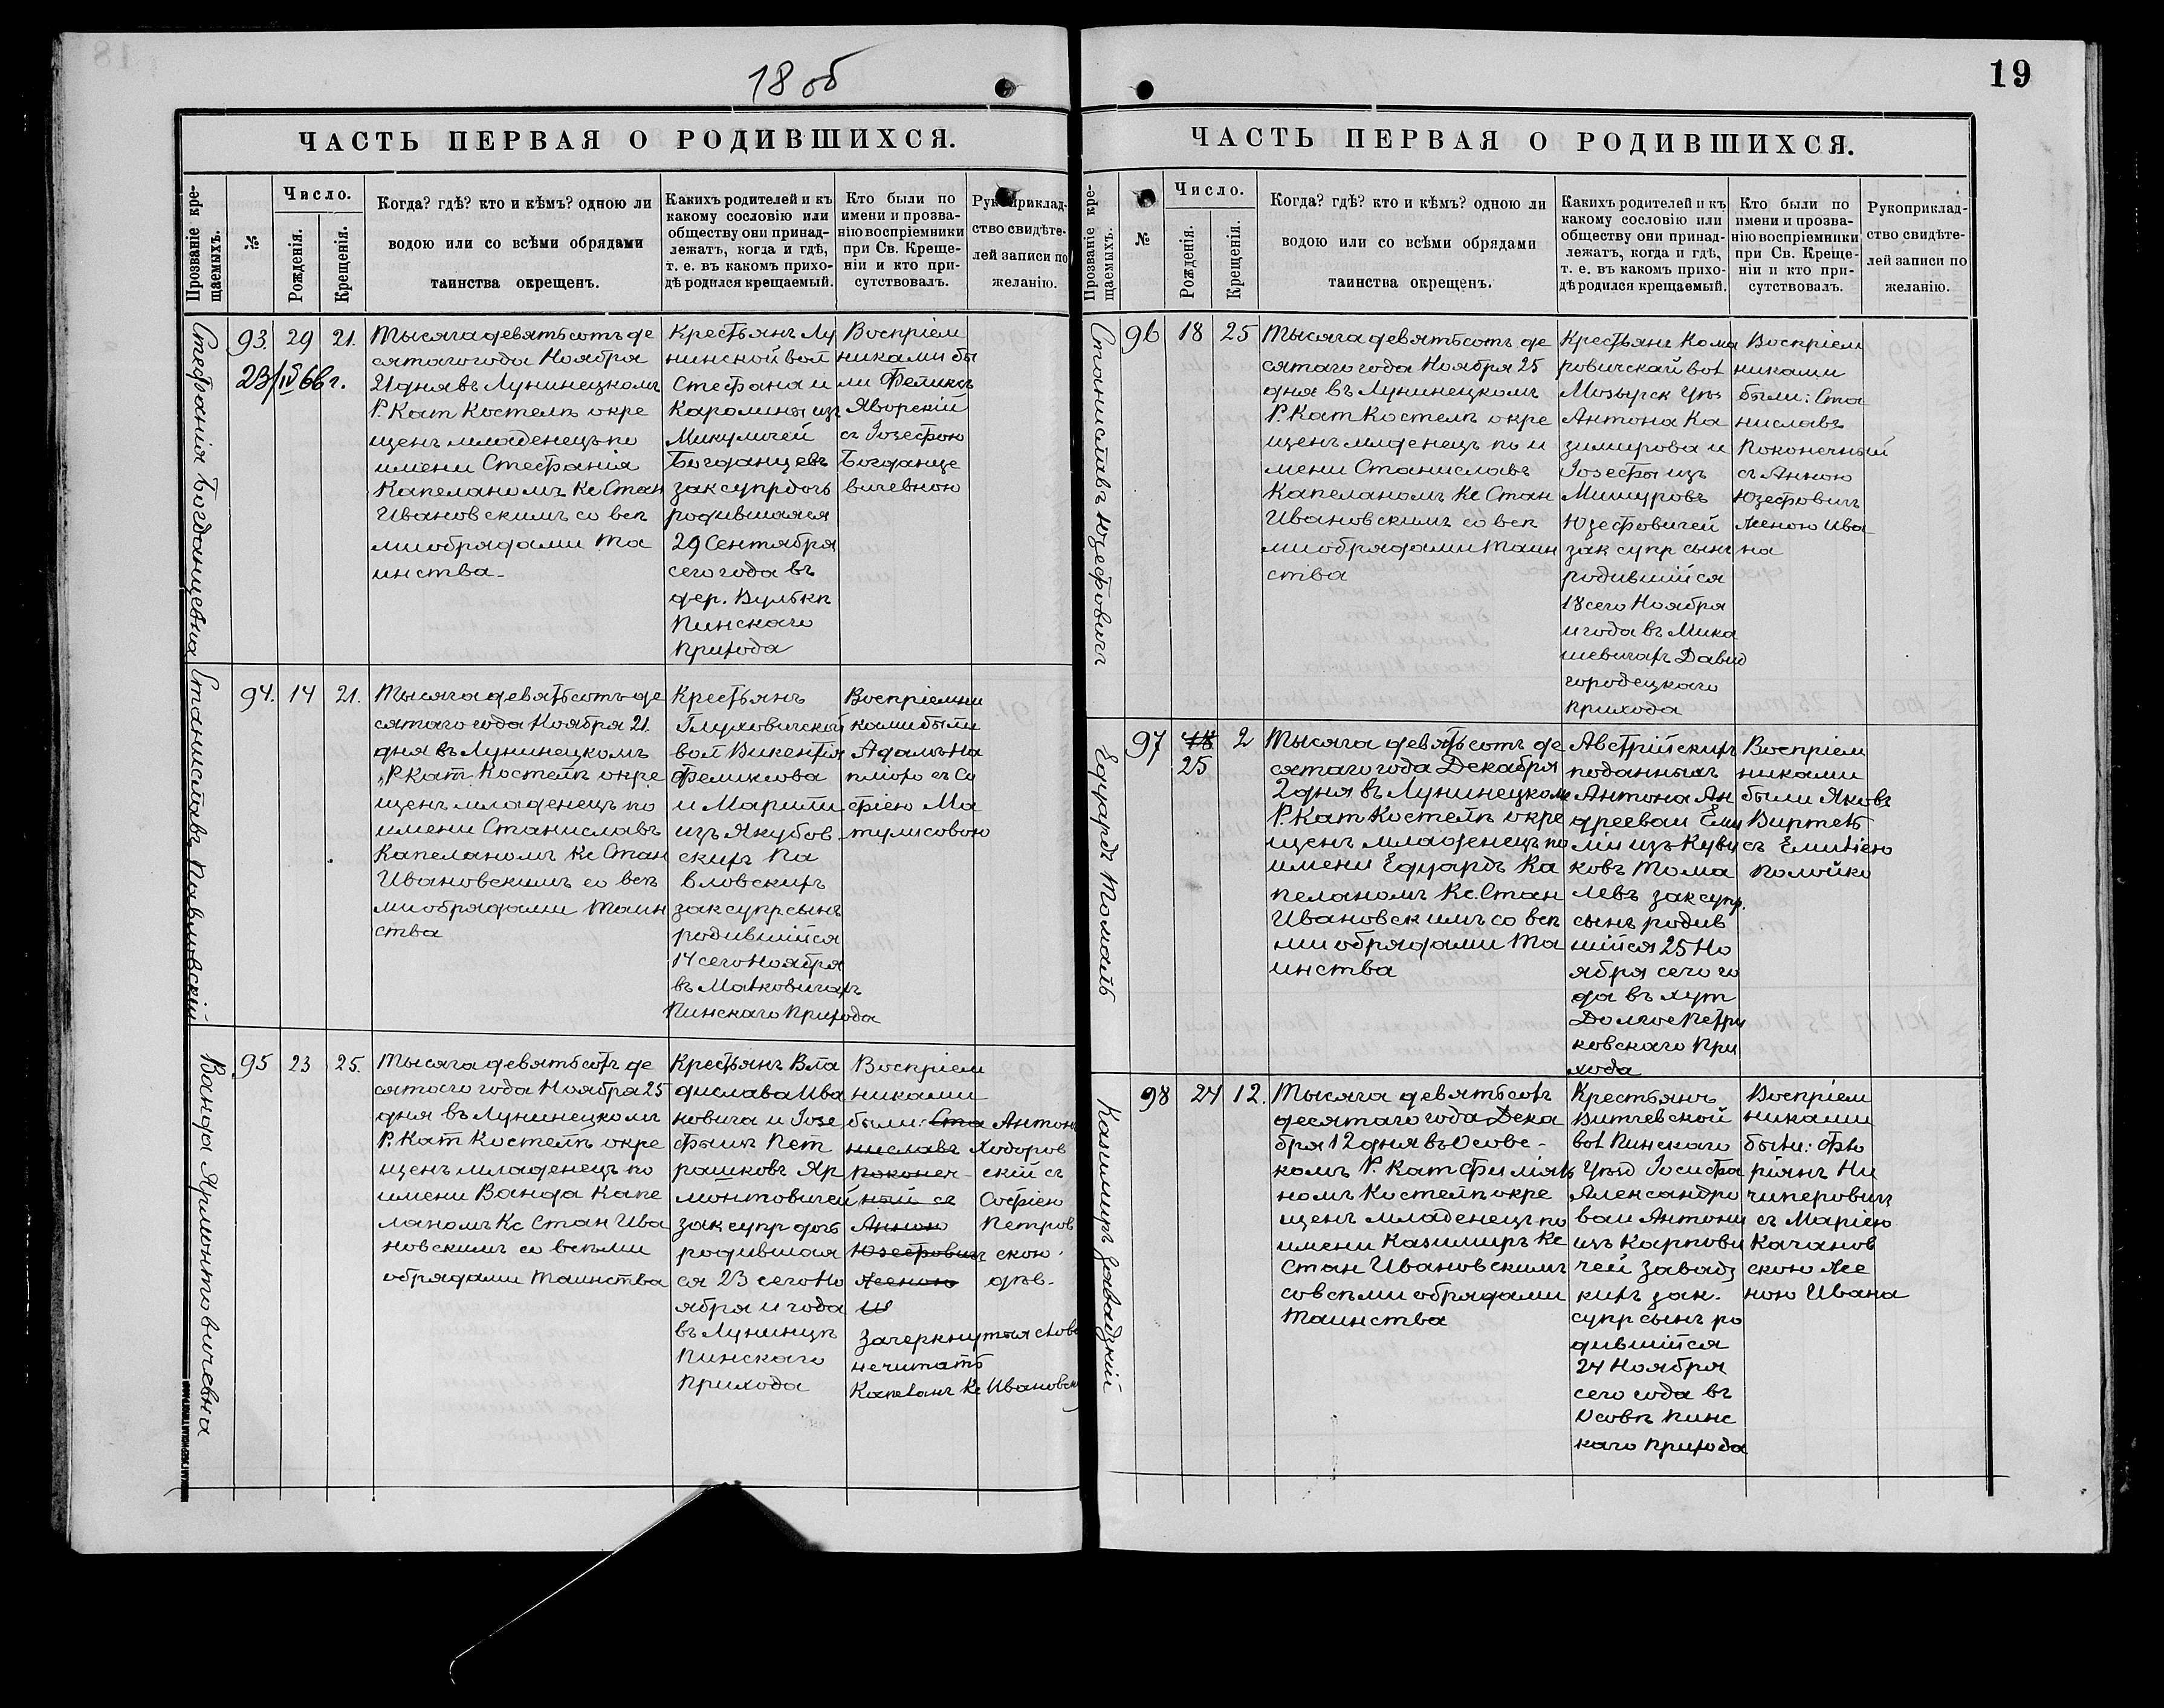 18 об
ЧАСТЬ ПЕРВАЯ О РОДИВШИХСЯ.
Прозваніе кре-
щаемыхъ.
№
Число.
Рожденія.
Крещенія.
Когда? гдѣ? кто и кѣмъ? одною ли
водою или со всѣми обрядами
таинства окрещенъ.
Какихъ родителей и къ
какому сословію или
обществу они принад-
лежатъ, когда и гдѣ,
т. е. въ какомъ прихо-
дѣ родился крещаемый.
Кто были по
имени и прозва-
нію воспріемники
при Св. Креще-
ніи и кто при-
сутствовалъ.
Рукоприклад-
ство свидѣте-
лей записи по
желанію.
Стефанія Богданцевна
93. 29 21.
23/IV 66 г.
Тысяча девятьсотъ де
сятаго года Ноября
21 дня въ Лунинецкомъ
Р. Кат Костелѣ окре
щенъ младенецъ по
имени Стефанія
Капеланомъ Кс Стан
Ивановскимъ со всѣ
ми обрядами Та
инства
Крестьянъ Лу
нинской вол
Стефана и
Каролины изъ
Микуличей
Богданцевъ
зак супр дочь
родившаяся
29 Сентября
сего года въ
дер. Вулькѣ
Пинскаго
Прихода
Воспріем
никами бы
ли Феликсъ
Яворскій
съ Іозефою
Богданце
вичевною
Станиславъ Павловскій
94. 14 21.
Тысяча девятьсотъ де
сятаго года Ноября 21.
дня въ Лунинецкомъ
Р. Кат Костелѣ окре
щенъ младенецъ по
имени Станиславъ
Капеланомъ Кс Стан
Ивановскимъ со всѣ
ми обрядами Таин
ства
Крестьянъ
вол Викентія
Феликсова
изъ Якубов
скихъ Па
вловскихъ
зак супр сынъ
родившійся
14 сего Ноября
въ Малковичахъ
Пинскаго Прихода
Воспріемни
ками были
фіею Ма
тулисовою
Ванда Ярмонтовичевна
95 23 25.
Тысяча девятьсотъ де
сятаго года Ноября 25
дня въ Лунинецкомъ
Р. Кат Костелѣ окре
щенъ младенецъ по
имени Ванда Капе
ланомъ Кс Стан Ива
новскимъ со всѣми
обрядами Таинства
Крестьянъ Вла
дислава Ива
новича и Іозе
фы изъ Пет
рашковъ Яр
монтовичей
зак супр дочь
родившая
ся 23 сего Но
ября и года
въ Лунинцѣ
Пинскаго
Прихода
Воспріем
никами
были: Ста
ниславъ
Поконеч
ный съ
Анною
Юзефовичъ
женою
Антонъ
Ходоров
скій съ
Софіею
Петров
скою
дѣв.
Зачеркнутыя слова
не читать
Капеланъ Кс Ивановскій
19
ЧАСТЬ ПЕРВАЯ О РОДИВШИХСЯ.
Прозваніе кре-
щаемыхъ.
№
Число.
Рожденія.
Крещенія.
Когда? гдѣ? кто и кѣмъ? одною ли
водою или со всѣми обрядами
таинства окрещенъ.
Какихъ родителей и къ
какому сословію или
обществу они принад-
лежатъ, когда и гдѣ,
т. е. въ какомъ прихо-
дѣ родился крещаемый.
Кто были по
имени и прозва-
нію воспріемники
при Св. Креще-
ніи и кто при-
сутствовалъ.
Рукоприклад-
ство свидѣте-
лей записи по
желанію.
Станиславъ Юзефовичъ
96 18 25
Тысяча девятьсотъ де
сятаго года Ноября 25
дня въ Лунинецкомъ
Р. Кат Костелѣ окре
щенъ младенецъ по и
мени Станиславъ
Капеланомъ Кс Стан
Ивановскимъ со всѣ
ми обрядами Таин
ства
Крестьянъ Кома
ровичской вол
Мозырск уѣз
Антона Ка
зимирова и
Іозефы изъ
Мишуровъ
Юзефовичей
зак супр сынъ
родившійся
18 сего Ноября
и года въ Мика
шевичахъ Давид
городецкаго
Прихода
Воспріем
никами
были: Ста
ниславъ
Поконечный
съ Анною
Юзефовичъ
женою Ива
на
Едуардъ Томаль
97 18 2
25
Тысяча девятьсотъ де
сятаго года Декабря
2 дня въ Лунинецкомъ
Р. Кат Костелѣ окре
щенъ младенецъ по
имени Едуардъ Ка
пеланомъ Кс. Стан
Ивановскимъ со всѣ
ми обрядами Та
инства
Австрійскихъ
поданныхъ
Антона Ан
дреева и Еми
ліи изъ Куви
ковъ Тома
левъ зак супр.
сынъ родив
шійся 25 Но
ября сего го
да въ хут
Долгое Петри
ковскаго При
хода
Воспріем
никами
были Яковъ
Виртель
съ Емиліею
Полойко
Казимиръ Завадзкій
98 24 12.
Тысяча девятьсотъ
десятаго года Дека
бря 12 дня въ Осовс-
комъ Р. Кат Филіаль
номъ Костелѣ окре
щенъ младенецъ по
имени Казимиръ Кс
Стан Ивановскимъ
со всѣми обрядами
Таинства
Крестьянъ
Витчевской
вол Пинскаго
уѣзд Іосифа
Александро
ва и Антони
изъ Карпови
чей Завадз
кихъ зак.
супр сынъ ро
дившійся
24 Ноября
сего года въ
Осовѣ Пинс
каго Прихода
Воспріем
никами
были: Фло
ріянъ Ни
чипоровичъ
съ Маріею
Качанов
скою же
ною Ивана